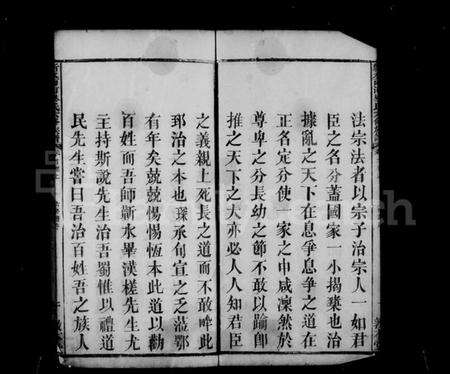 法宗法者以宗子治宗人一如君
臣之名分蓋國家一小揚棄也治
據亂之天下在息爭息爭之道在
正名定分使一家之中咸凜然於
尊卑之分長幼之節不敢以踰卽
推之天下之大亦必人人知君臣
之義親上死長之道而不敢畔此
郅治之本也琛承旬宣之乏蒞鄂
有年矣兢兢惕惕恆本此道以勸
百姓而吾師蘄水畢漢槎先生尤
主持斯說先生治吾蜀惟以禮道
民先生嘗曰吾治百姓吾之族人